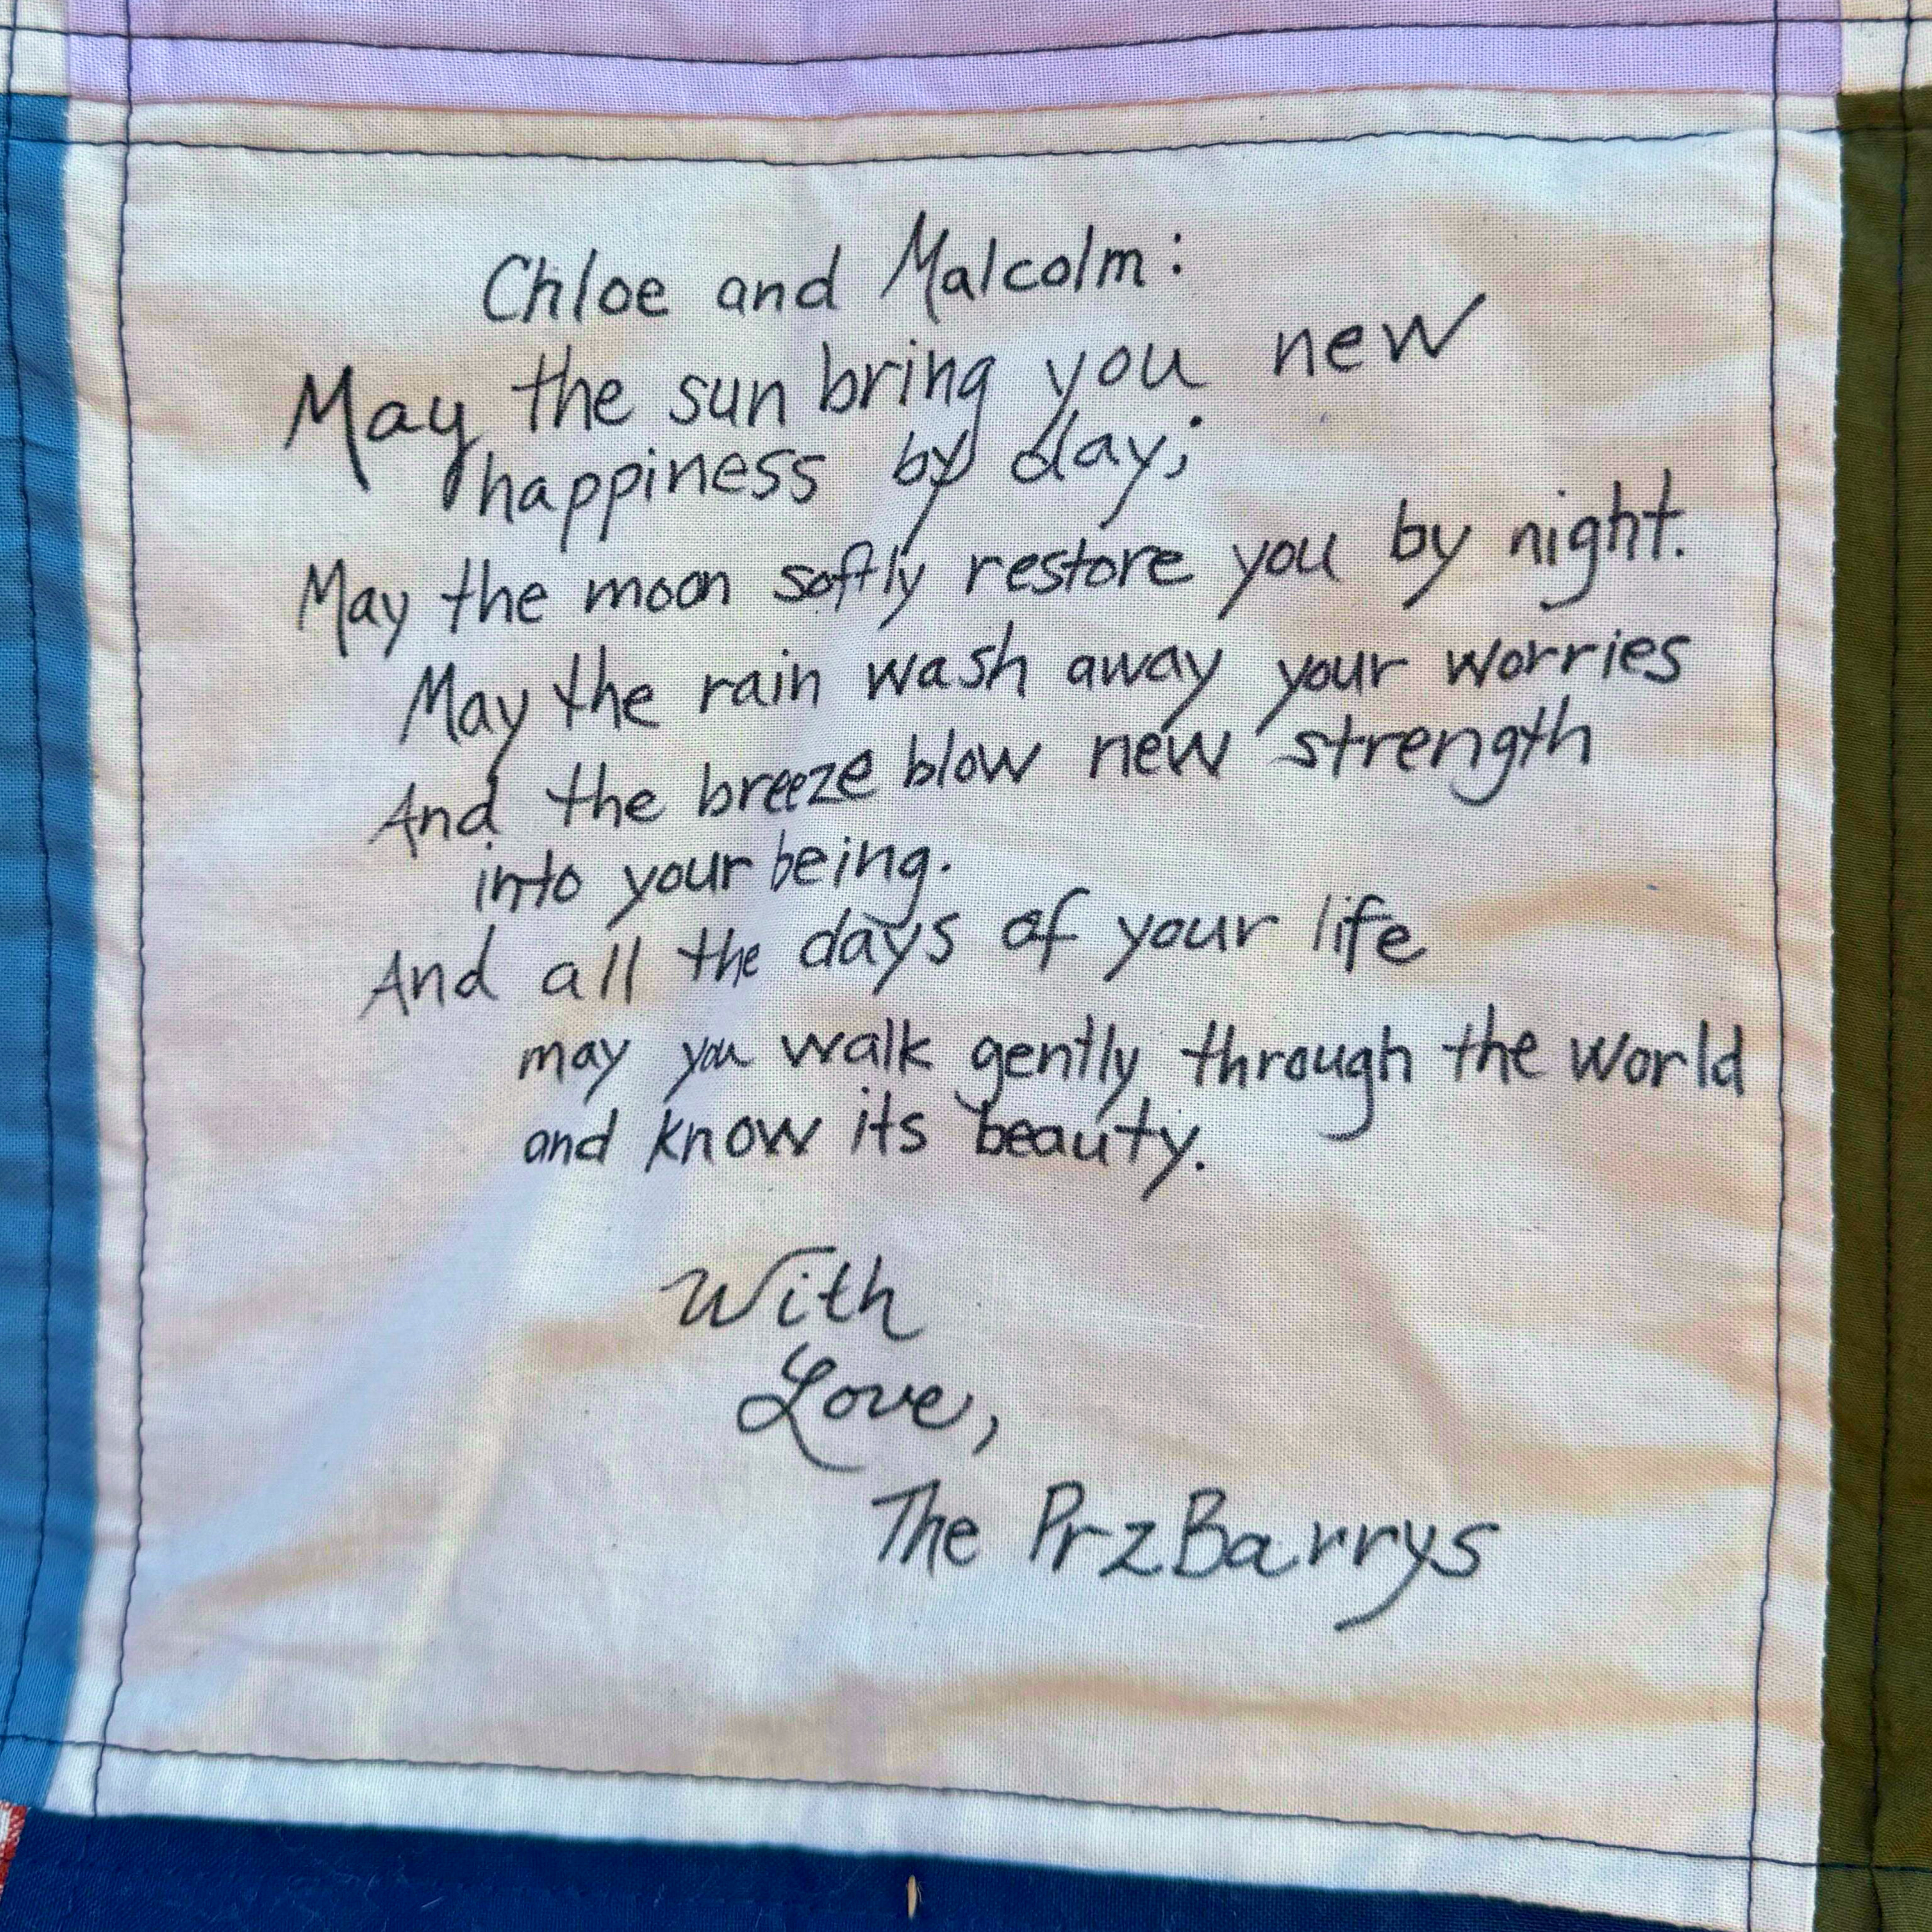 Chloe and Malcolm:
May the sun bring you new
happiness by day;
May the moon softly restore you by night.
May the rain wash away your worries
And the breeze blow new strength
into your being.
And all the days of your life
may you walk gently through the world
and know its beauty.
With
Love,
The PrzBarrys